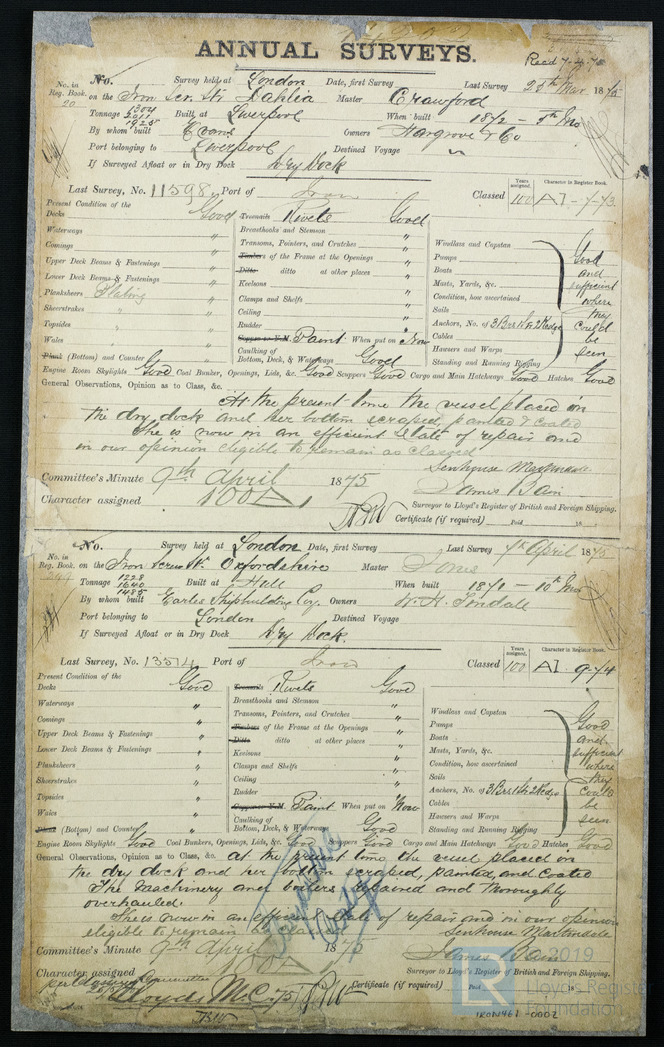 ANNUAL SURVEYS.
No. in Reg. Book. 20
No. Survey held at London Date, first Survey Last Survey 25th Mar 1875
on the Iron Scr. Str Dahlia Master Crawford
Tonnage 1304 2011 1925 Built at Liverpool When built 1872 - 5th Mo
By whom built Evans Owners Hargrove & Co
Port belonging to Liverpool Destined Voyage
If Surveyed Afloat or in Dry Dock Dry Dock
Last Survey, No. 11598 Port of Iron Classed
Years assigned. 100 Character in Register Book. A1 - 7-73
Present Condition of the
Decks Good
Waterways "
Comings "
Upper Deck Beams & Fastenings "
Lower Deck Beams & Fastenings "
Planksheers Plating "
Sheerstrakes " "
Topsides " "
Wales " "
Plank (Bottom) and Counter "
Treenails Rivets Good
Breasthooks and Stemson "
Transoms, Pointers, and Crutches "
Timbers of the Frame at the Openings "
Ditto ditto at other places "
Keelsons "
Clamps and Shelfs "
Ceiling "
Rudder "
Copper or Y.M. Paint When put on Now
Caulking of Bottom, Deck, & Waterways Good
Windlass and Capstan
Pumps
Boats
Masts, Yards, &c.
Condition, how ascertained
Sails
Anchors, No. of 3 Brs 1 St 2 Kedge
Cables
Hawsers and Warps
Standing and Running Rigging
Good
and
sufficient
where
they
could
be
seen
Engine Room Skylights Good Coal Bunker, Openings, Lids, &c. Good Scuppers Good Cargo and Main Hatchways Good Hatches Good
General Observations, Opinion as to Class, &c.
At the present time the vessel placed in
the dry dock and her bottom scraped, painted & coated
She is now in an efficient State of repair and
in our opinion eligible to remain as classed
Senhouse Martindale
James Bain
Committee's Minute 9th April 1875
Character assigned 100 A 1
Surveyor to Lloyd's Register of British and Foreign Shipping.
Certificate (if required) Paid 18
No. in Reg. Book.
No. Survey held at London Date, first Survey Last Survey 7th April 1875
on the Iron Screw Str. Oxfordshire Master Jones
Tonnage 1228 1640 1485 Built at Hull When built 1871 - 10th Mo
By whom built Earles Shipbuilding Coy. Owners
Port belonging to London Destined Voyage
If Surveyed Afloat or in Dry Dock Dry Dock.
Last Survey, No. 13574 Port of Iron Classed
Years assigned. 100 Character in Register Book. A1 9-74
Present Condition of the
Decks Good
Waterways "
Comings "
Upper Deck Beams & Fastenings "
Lower Deck Beams & Fastenings "
Planksheers "
Sheerstrakes "
Topsides "
Wales "
Plank (Bottom) and Counter "
Treenails Rivets Good
Breasthooks and Stemson "
Transoms, Pointers, and Crutches "
Timbers of the Frame at the Openings "
Ditto ditto at other places "
Keelsons "
Clamps and Shelfs "
Ceiling "
Rudder "
Copper or Y.M. Paint When put on Now
Caulking of Bottom, Deck, & Waterways Good
Windlass and Capstan
Pumps
Boats
Masts, Yards, &c.
Condition, how ascertained
Sails
Anchors, No. of 3 Brs 1 St 2 Kedge
Cables
Hawsers and Warps
Standing and Running Rigging
Good
and
sufficient
where
they
could
be
seen
Engine Room Skylights Good Coal Bunkers, Openings, Lids, &c. Good Scuppers Good Cargo and Main Hatchways Good Hatches Good
General Observations, Opinion as to Class, &c. at the present time the vessel placed on
the dry dock and her bottom scraped, painted, and coated
The Machinery and boilers and thoroughly
overhauled.
She is now in an efficient state of repair and in our opinion
eligible to remain as classed
Senhouse Martindale
James Bain
Committee's Minute 9th April 1875
Character assigned 100 A 1
Surveyor to Lloyd's Register of British and Foreign Shipping.
Lloyds M.C. 75
Certificate (if required) Paid 18
© 2019
LR Lloyd's Register Foundation
IRON461-0002